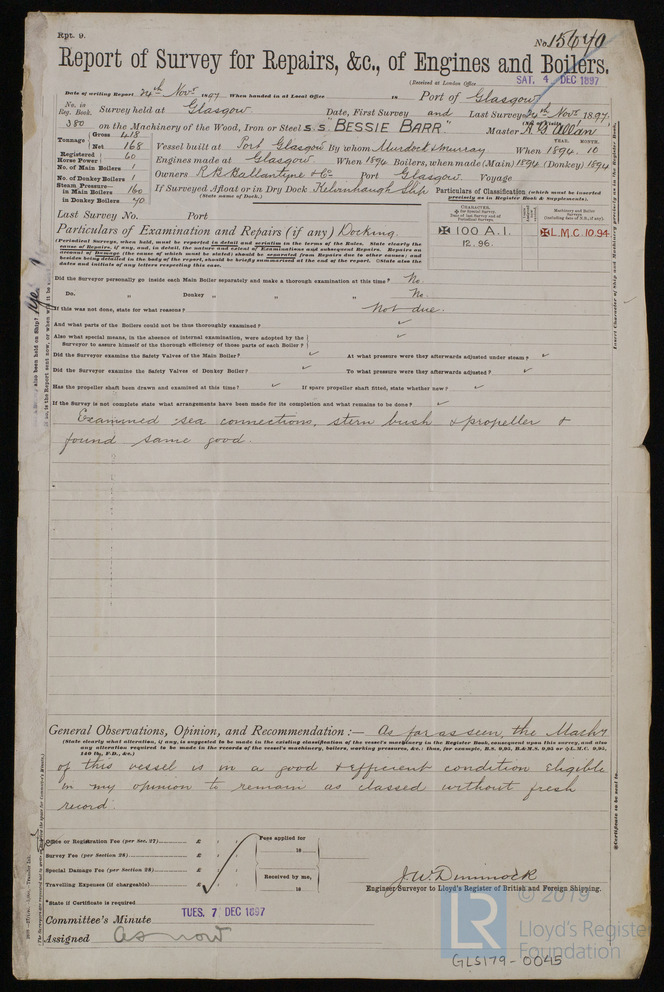 Rpt. 9.
No. 15640
Report of Survey for Repairs, &c., of Engines and Boilers.
(Received at London Office
SAT. 4 DEC 1897
Date of writing Report 24th Novr 1897 When handed in at Local Office 18 Port of Glasgow
No. in Reg. Book. Survey held at Glasgow Date, First Survey and Last Survey 24th Novr 1897
380 on the Machinery of the Wood, Iron or Steel s.s. "BESSIE BARR" Master R G Allan
Tonnage Gross 418
Net 168 Vessel built at Port Glasgow By whom Murdoch & Murray When 1894 10
YEAR. MONTH.
Registered Horse Power 60 Engines made at Glasgow When 1894 Boilers, when made (Main) 1894 (Donkey) 1894
No. of Main Boilers 1
No. of Donkey Boilers 1 Owners R B Ballantyne & Co Port Glasgow Voyage
Steam Pressure in Main Boilers 160 If Surveyed Afloat or in Dry Dock Kelvinhaugh Slip
(State name of Dock.)
in Donkey Boilers 40
Particulars of Classification (which must be inserted precisely as in Register Book & Supplements).
Last Survey No. Port
100 A.1.
12.96
L.M.C. 10.94
Particulars of Examination and Repairs (if any) Docking.
Did the Surveyor personally go inside each Main Boiler separately and make a thorough examination at this time? No.
Do. " Donkey " " " No.
If this was not done, state for what reasons? Not due.
And what parts of the Boilers could not be thus thoroughly examined?
Also what special means, in the absence of internal examination, were adopted by the
Surveyor to assure himself of the thorough efficiency of those parts of each Boiler?
Did the Surveyor examine the Safety Valves of the Main Boiler? At what pressure were they afterwards adjusted under steam?
Did the Surveyor examine the Safety Valves of Donkey Boiler? To what pressure were they afterwards adjusted?
Has the propeller shaft been drawn and examined at this time? If spare propeller shaft fitted, state whether now?
If the Survey is not complete state what arrangements have been made for its completion and what remains to be done?
Examined sea connections, stern bush & propeller &
found same good.
General Observations, Opinion, and Recommendation:— As far as seen, the Machy
(State clearly what alteration, if any, is suggested to be made in the existing classification of the vessel's machinery in the Register Book, consequent upon this survey, and also
any alteration required to be made in the records of the vessel's machinery, boilers, working pressures, &c.
of this vessel is in a good & efficient condition eligible
in my opinion to remain as classed without fresh
record.
Office or Registration Fee (per Sec. 27) £
Fees applied for
18
Survey Fee (per Section 28) £
Special Damage Fee (per Section 28) £
Received by me,
18
Travelling Expenses (if chargeable) £
J.W. Dimmock
Engineer Surveyor to Lloyd's Register of British and Foreign Shipping.
*State if Certificate is required
Committee's Minute TUES. 7 DEC 1897
Assigned as now
© 2019
LR
Lloyd's Register
Foundation
GLS179-0045